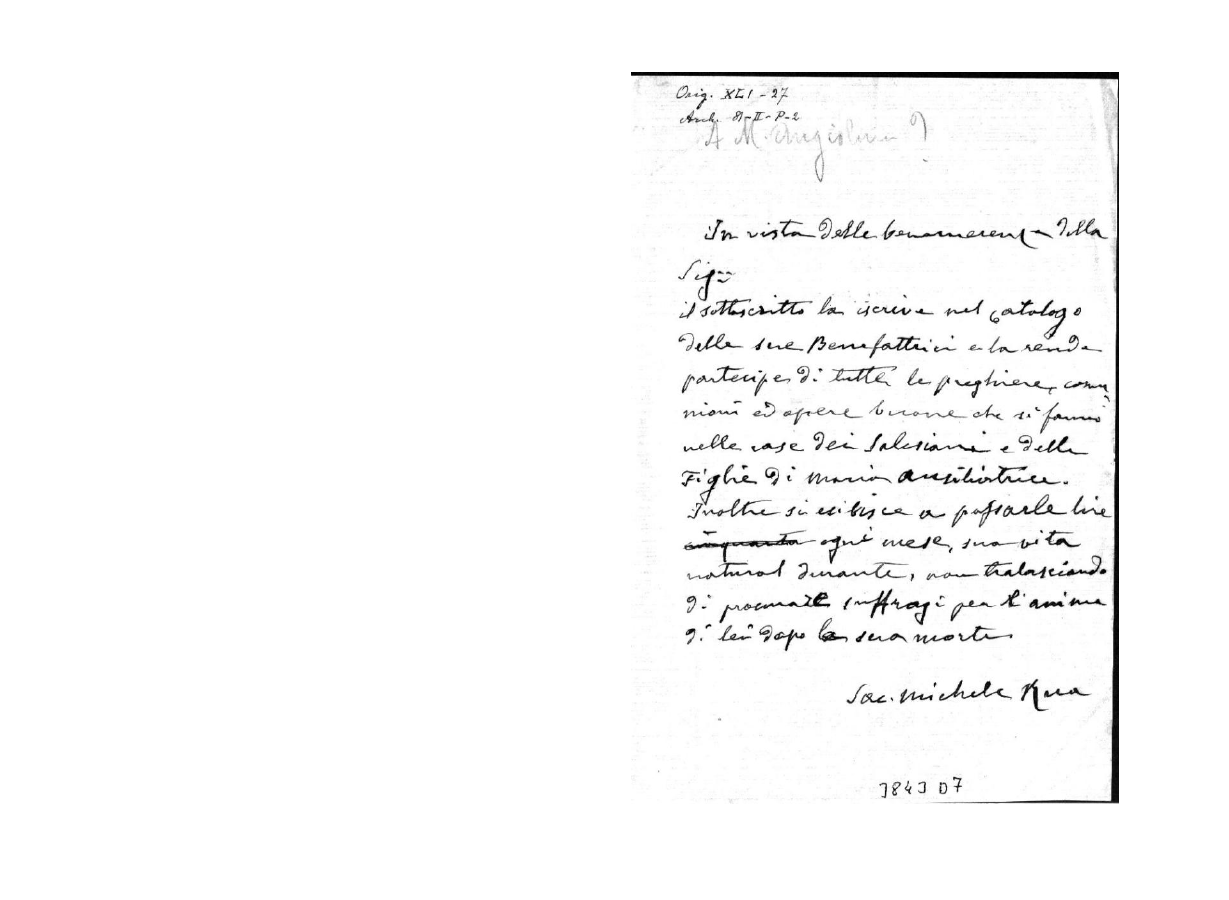 Orig. XLI - 27
Arch. 81-II-P-2
A M. Angiolina ?
In vista delle benemerenze della
Sig.ra
il sottoscritto la iscrive nel catalogo
delle sue Benefattrici e la rende
partecipe di tutte le preghiere, comu
nioni ed opere buone che si fanno
nelle case dei Salesiani e delle
Figlie di Maria Ausiliatrice.
Inoltre si esibisce a passarle lire
cinquanta ogni mese, sua vita
natural durante, non tralasciando
di procurare suffragi per l'anima
di lei dopo la sua morte.
Sac. Michele Rua
3843 D7